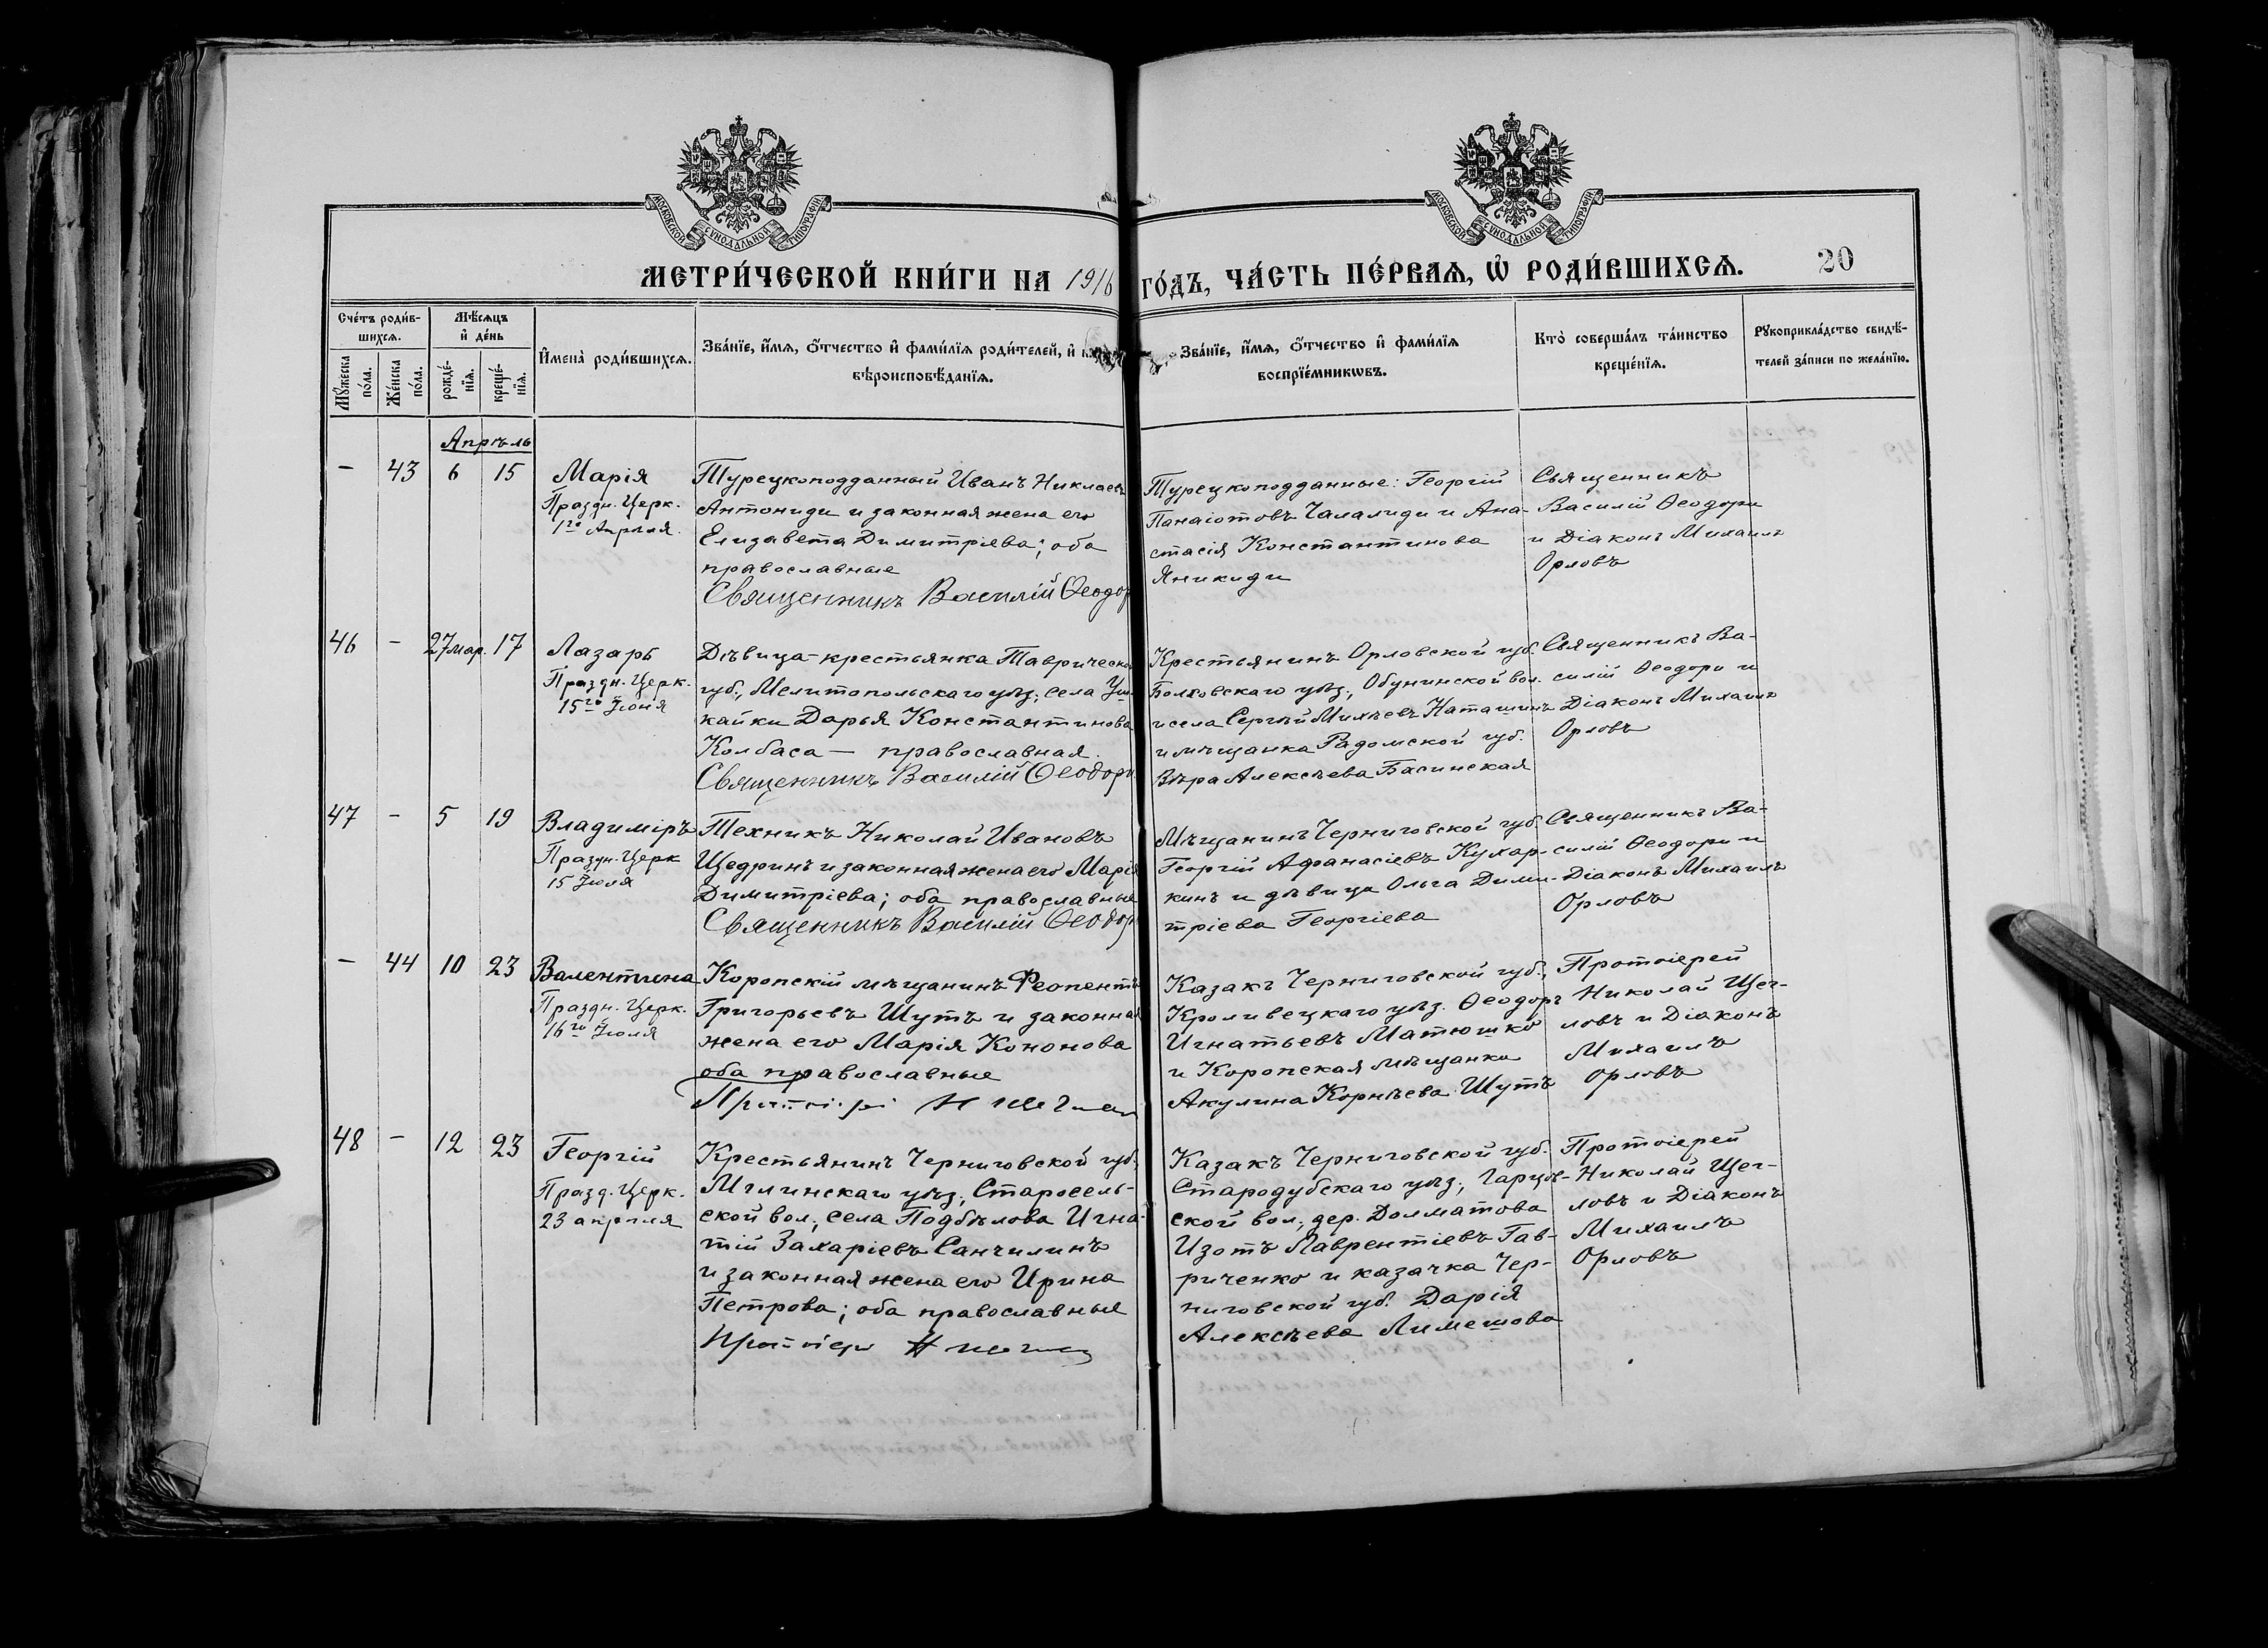 МОСКОВСКОЙ СУНОДАЛЬНОЙ ТИПОГРАФІИ
МОСКОВСКОЙ СУНОДАЛЬНОЙ ТИПОГРАФІИ
МЕТРИ́ЧЕСКОЙ КНИ́ГИ НА 1916 ГО́ДЪ, ЧА́СТЬ ПЕ́РВАѦ, Ѡ҆ РОДИ́ВШИХСѦ.
20
Сче́тъ роди́в-
шихсѧ.
Мꙋ́жеска по́ла.
Же́нска по́ла.
Мѣ́сѧцъ
и҆ де́нь
рожде́-
нїѧ.
креще́-
нїѧ.
И҆мена̀ роди́вшихсѧ.
Зва́нїе, и҆́мѧ, ѻ҆́тчество и҆ фами́лїѧ роди́телей, и҆
вѣроисповѣ́данїѧ.
Зва́нїе, и҆́мѧ, ѻ҆́тчество и҆ фами́лїѧ
воспрїе́мникѡвъ.
Кто̀ соверша́лъ та́инство
креще́нїѧ.
Рꙋкоприкла́дство свидѣ́-
телей за́писи по жела́нїю.
Апрѣль
— 43 6 15
Марія
Праздн. Церк.
1го Апрѣля.
Турецкоподданный Иванъ Николаевъ
Антониди и законная жена его
Елизавета Димитріева; оба
православные
Священникъ Василій Ѳеодори
Турецкоподданные: Георгій
Панаіотовъ Чалалиди и Ана-
стасія Константинова
Яникиди
Священникъ
Василій Ѳеодори
и Діаконъ Михаилъ
Орловъ
46 — 27 мар. 17
Лазарь
Праздн. Церк.
15го Іюня
Дѣвица-крестьянка Таврической
губ., Мелитопольскаго уѣз., села
кайки Дарья Константинова
Колбаса — православная.
Священникъ Василій Ѳеодори
Крестьянинъ Орловской губ.
Болховскаго уѣз., Обунинской вол.
и села Сергѣй Михѣевъ Наташинъ
и мѣщанка Радомской губ.
Вѣра Алексѣева Басинская
Священникъ Ва-
силій Ѳеодори и
Діаконъ Михаилъ
Орловъ
47 — 5 19
Владиміръ
Праздн. Церк
15 Іюля
Техникъ Николай Ивановъ
Щедринъ и законная жена его Марія
Димитріева; оба православные
Священникъ Василій Ѳеодори
Мѣщанинъ Черниговской губ.
Георгій Афанасіевъ Кухар-
кинъ и дѣвица Ольга Дими-
тріева Георгіева
Священникъ Ва-
силій Ѳеодори и
Діаконъ Михаилъ
Орловъ
— 44 10 23
Валентина
Праздн. Церк.
16го Іюля
Коропскій мѣщанинъ Феопентъ
Григорьевъ Шутъ и законная
жена его Марія Кононова
оба православные
Протоіерей Н Щегловъ
Казакъ Черниговской губ.,
Кролевецкаго уѣз. Ѳеодоръ
Игнатьевъ Матюшко
и Коропская мѣщанка
Акулина Корнѣева Шутъ
Протоіерей
Николай Щег-
ловъ и Діаконъ
Михаилъ
Орловъ
48 — 12 23
Георгій
Празд. Церк.
23 апрѣля
Крестьянинъ Черниговской губ.,
Мглинскаго уѣз., Старосель-
ской вол., села Подбѣлова Игна-
тій Захаріевъ Санчилинъ
и законная жена его Ирина
Петрова; оба православные
Протоіерей Н Щегловъ
Казакъ Черниговской губ.
Стародубскаго уѣз., Гарцев-
ской вол., дер. Долматова
Изотъ Лаврентіевъ Гав-
риченко и казачка Чер-
ниговской губ. Дарія
Алексѣева Лимешова
Протоіерей
Николай Щег-
ловъ и Діаконъ
Михаилъ
Орловъ